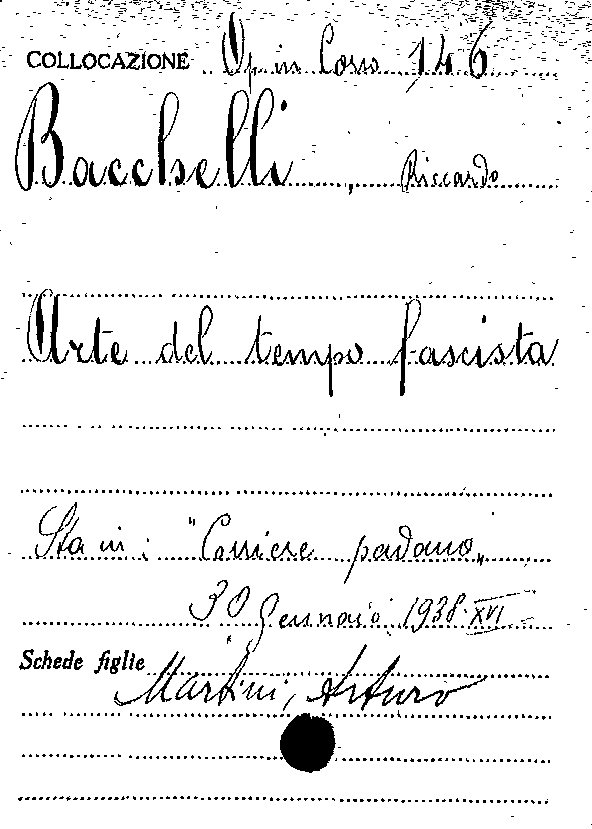 COLLOCAZIONE Op. in Corso 146
Bacchelli, Riccardo
Arte del tempo fascista
Sta in: "Corriere padano„
30 Gennaio 1938-XVI
Schede figlie
Martini, Arturo